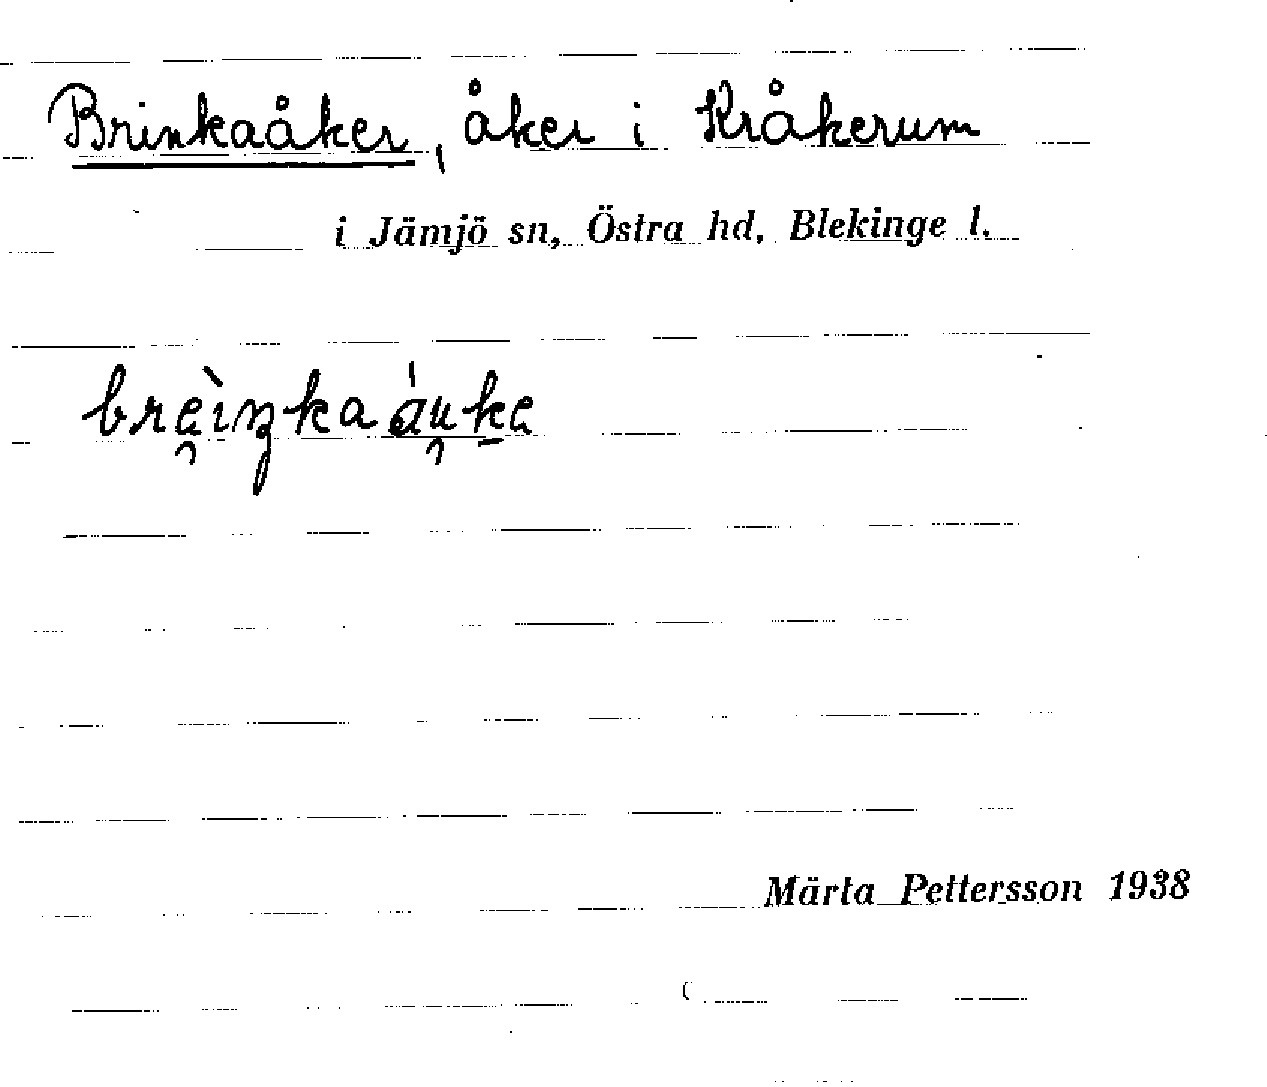 Brinkaåker, åker i Kråkerum
i Jämjö sn, Östra hd, Blekinge l.
Märta Pettersson 1938